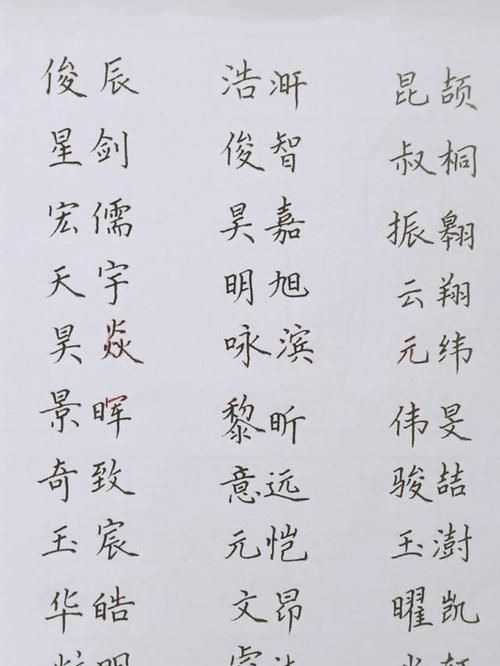 俊辰 浩汧 昆颉
星剑 俊智 叔桐
宏儒 昊嘉 振翱
天宇 明旭 云翔
昊焱 咏滨 元纬
景晖 黎昕 伟旻
奇致 意远 骏喆
玉宸 元恺 玉澍
华皓 文昂 曜凯